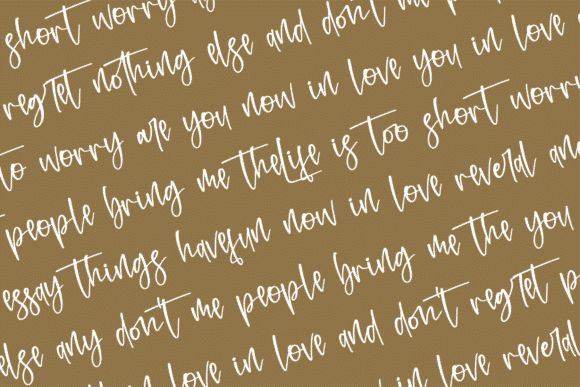 short worry
regret nothing else and don't me
to worry are you now in love you in love
people bring me theLife is too short worry
essay things havefun now in love reveral and
else any don't me people bring me the you
love in love and don't regret
in love reveral